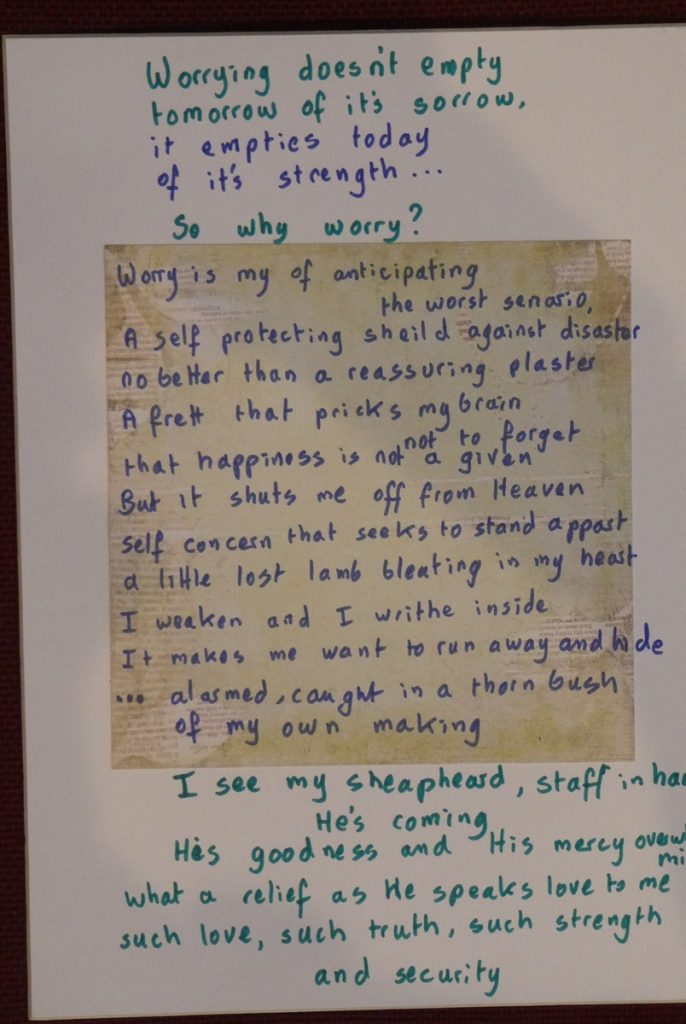 Worrying doesn't empty
tomorrow of it's sorrow,
it empties today
of it's strength...
So why worry?
Worry is my of anticipating
the worst senario,
A self protecting sheild against disaster
no better than a reassuring plaster
A frett that pricks my brain
not to forget
that happiness is not a given
But it shuts me off from Heaven
self concern that seeks to stand appart
a little lost lamb bleating in my heart
I weaken and I writhe inside
It makes me want to run away and hide
... alarmed, caught in a thorn bush
of my own making
I see my sheapheard, staff in ha
He's coming
His goodness and His mercy overw
mi
what a relief as He speaks love to me
such love, such truth, such strength
and security